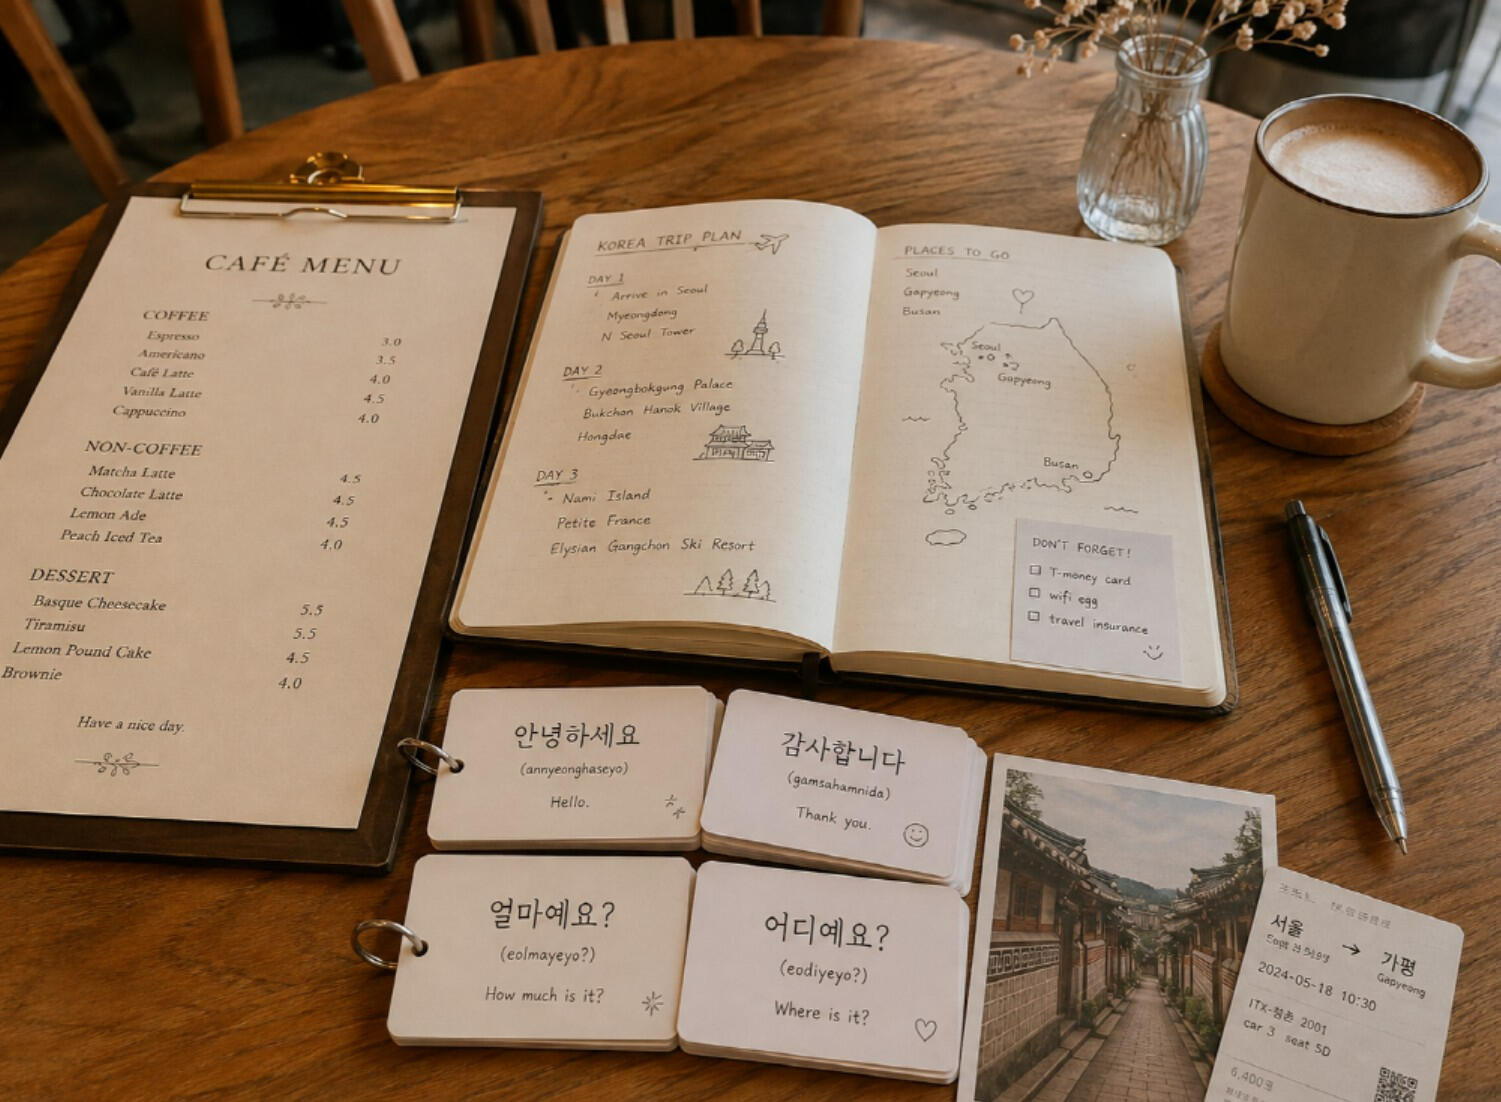 CAFÉ MENU
COFFEE
Espresso 3.0
Americano 3.5
Café Latte 4.0
Vanilla Latte 4.5
Cappuccino 4.0
NON-COFFEE
Matcha Latte 4.5
Chocolate Latte 4.5
Lemon Ade 4.5
Peach Iced Tea 4.0
DESSERT
Basque Cheesecake 5.5
Tiramisu 5.5
Lemon Pound Cake 4.5
Brownie 4.0
Have a nice day.
KOREA TRIP PLAN
DAY 1
Arrive in Seoul
Myeongdong
N Seoul Tower
DAY 2
Gyeongbokgung Palace
Bukchon Hanok Village
Hongdae
DAY 3
Nami Island
Petite France
Elysian Gangchon Ski Resort
PLACES TO GO
Seoul
Gapyeong
Busan
Seoul
Gapyeong
Busan
DON'T FORGET!
T-money card
wifi egg
travel insurance
안녕하세요
(annyeonghaseyo)
Hello.
감사합니다
(gamsahamnida)
Thank you.
얼마예요?
(eolmayeyo?)
How much is it?
어디예요?
(eodiyeyo?)
Where is it?
서울 → 가평
Gapyeong
2024-05-18 10:30
ITX-청춘 2001
car 3 seat 5D
6,400